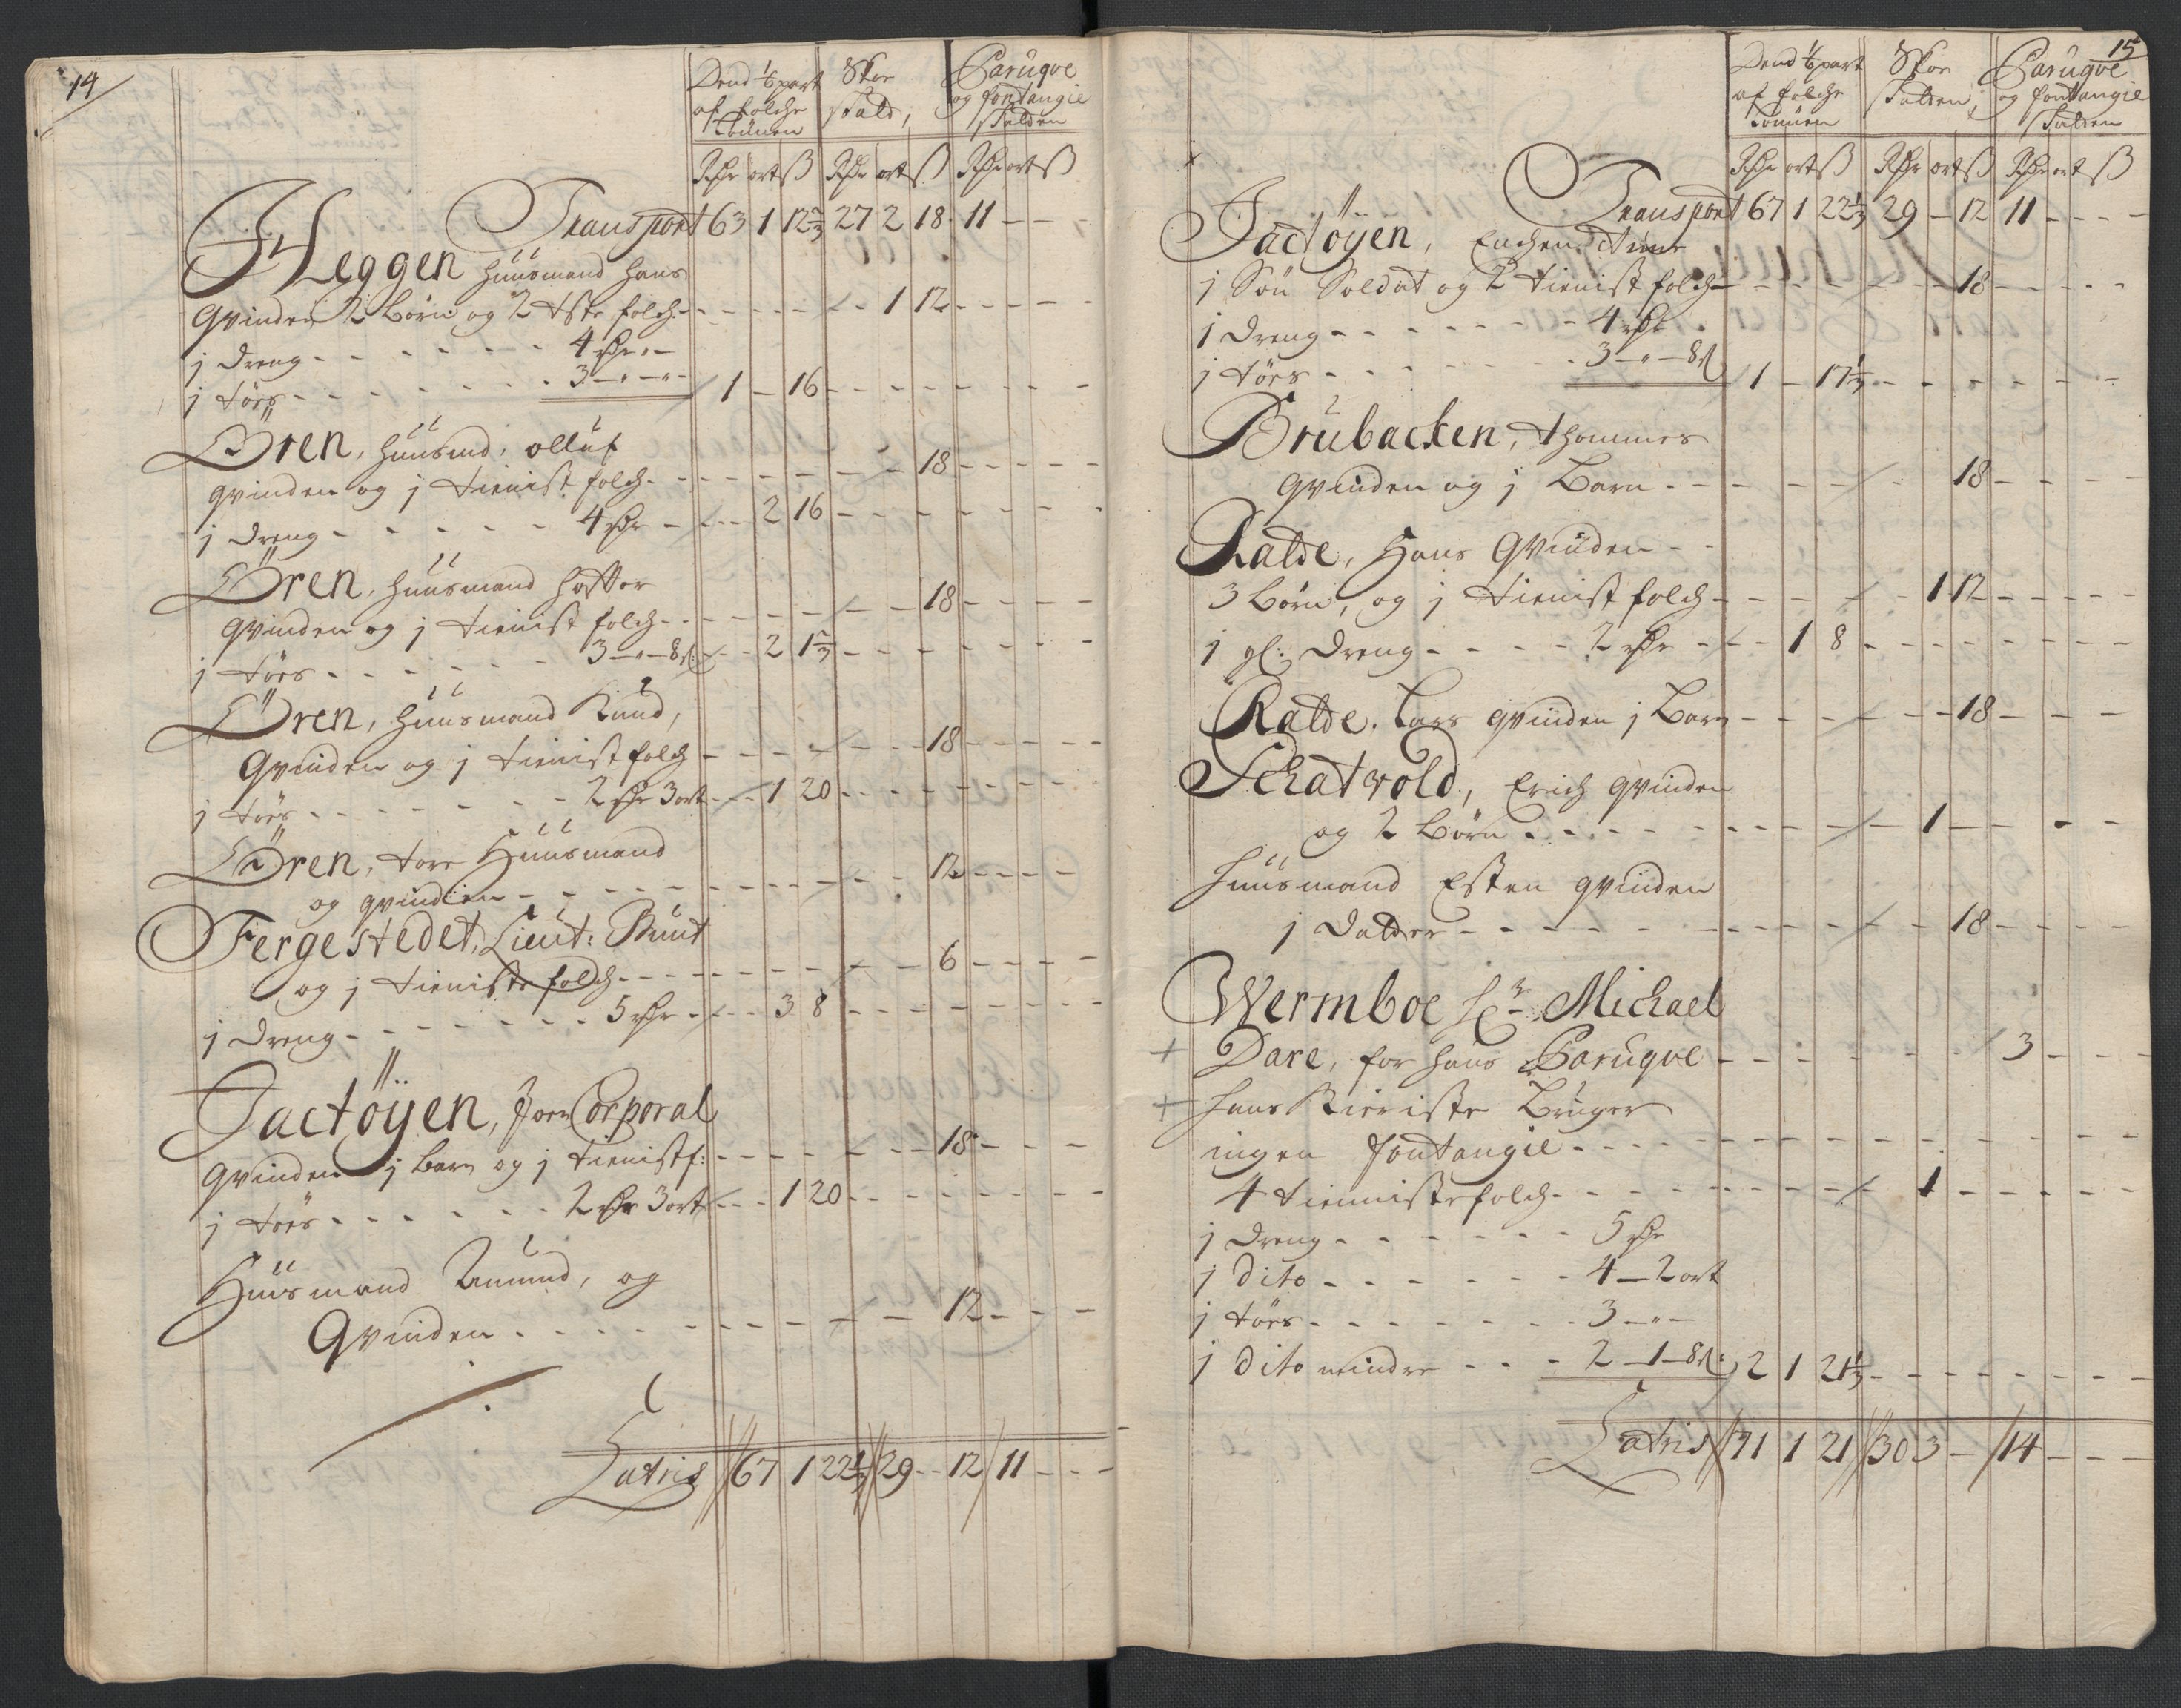 14
Dend 1/6 part af folche Lönnen | Skoe skatt, | Paruqve og fontangie skatten
Rdr ort ß | Rdr ort ß | Rdr ort ß
Transport 63 1 12 2/3 27 2 18 11 - -
Heggen Huusmand Hans
Qvinden 2 Börn og 2 tste folch - - - 1 12 - - -
1 Dreng - - - 4 Rdr " -
1 töes - - - 3 - " - " - 1 - 16 - - -
Ören, Huusmd, olluf
qvinden og 1 tieniste folch - - - 18 - - -
1 Dreng - - - 4 Rdr - - 2 16 - - -
Ören, Huusmand
qvinden og 1 tieniste folch - - - 18 - - -
1 töes - - - 3 - " - 8 ß: - 2 1 2/3 - - -
Ören, Huusmand Knud,
Qvinden og 1 tieniste folch - - - 18 - - -
1 töes - - - 2 Rdr 3 ort - - 1 20 - - -
Ören, tore Huusmand
og qvinden - - - 12 - - -
Fergestedet, Lieut: Bunt
og 1 tieniste folch - - - 6 - - -
1 Dreng - - - 5 Rdr - - 3 8 - - -
Jactöyen, Joen Corporal
qvinden 1 barn og 1 tienistf: - - - 18 - - -
1 töes - - - 2 Rdr 3 ort - - 1 20 - - -
Huusmand Amund, og
Qvinden - - - 12 - - -
Latris 67 1 22 1/3 29 - 12 11 - - -
15
Dend 1/6 part af folche Lönnen | Skoe skatten, | Paruqve og fontangie skatten
Rdr ort ß | Rdr ort ß | Rdr ort ß
Transport 67 1 22 1/3 29 - 12 11 - - -
Jactöyen, Enchen
1 Sön Soldat og 2 tieniste folch - - - 18 - - -
1 Dreng - - - 4 Rdr
1 töes - - - 3 - " - 8 ß 1 - 17 1/3 - - -
Brubacken, thommes
qvinden og 1 Barn - - - 18 - - -
Ralde, Hans Qvinden - -
3 Börn, og 1 tieniste folch - - - 1 12 - - -
1 gl: Dreng - - - 2 Rdr - - 1 8 - - -
Ralde. Lars qvinden 1 Barn - - - 18 - - -
Schatvold, Erich qvinden
og 2 Börn - - - 1 - - -
Huusmand Esten qvinden
1 Datter - - - 18 - - -
Wermboe Sr Michael
+ Dare, for hans Paruqve - - - 3 - - -
+ hans Kieriste Bruger
ingen fontangie - - -
4 tienniste folch - - - 1 - - -
1 Dreng - - - 5 Rdr
1 Dito - - - 4 - 2 ort
1 töes - - - 3 - " -
1 Dito mindre - - - 2 - 1 - 8 ß: 2 1 21 1/3 - - -
Latris 71 1 21 30 3 - 14 - - -